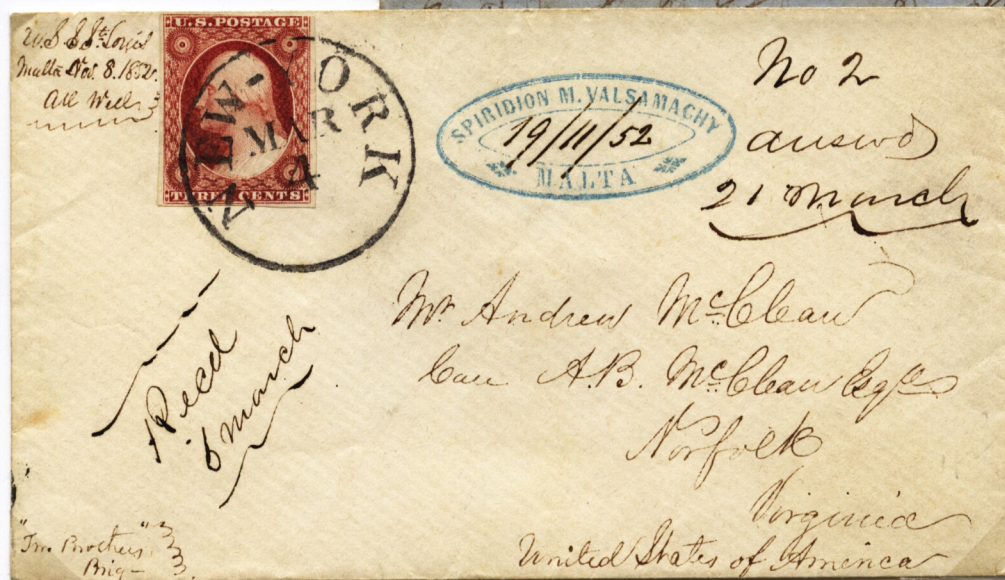 U.S.S. St. Louis
Malta Nov. 8. 1852.
All Well
U.S. POSTAGE
THREE CENTS
NEW-YORK
MAR
4
SPIRIDION M. VALSAMACHY
19/11/52
MALTA
No 2
answd
21 March
Mr. Andrew McClean
Care A.B. McClean Esqr
Norfolk
Virginia
United States of America
Recd
6 March
"Two Brothers"
Brig